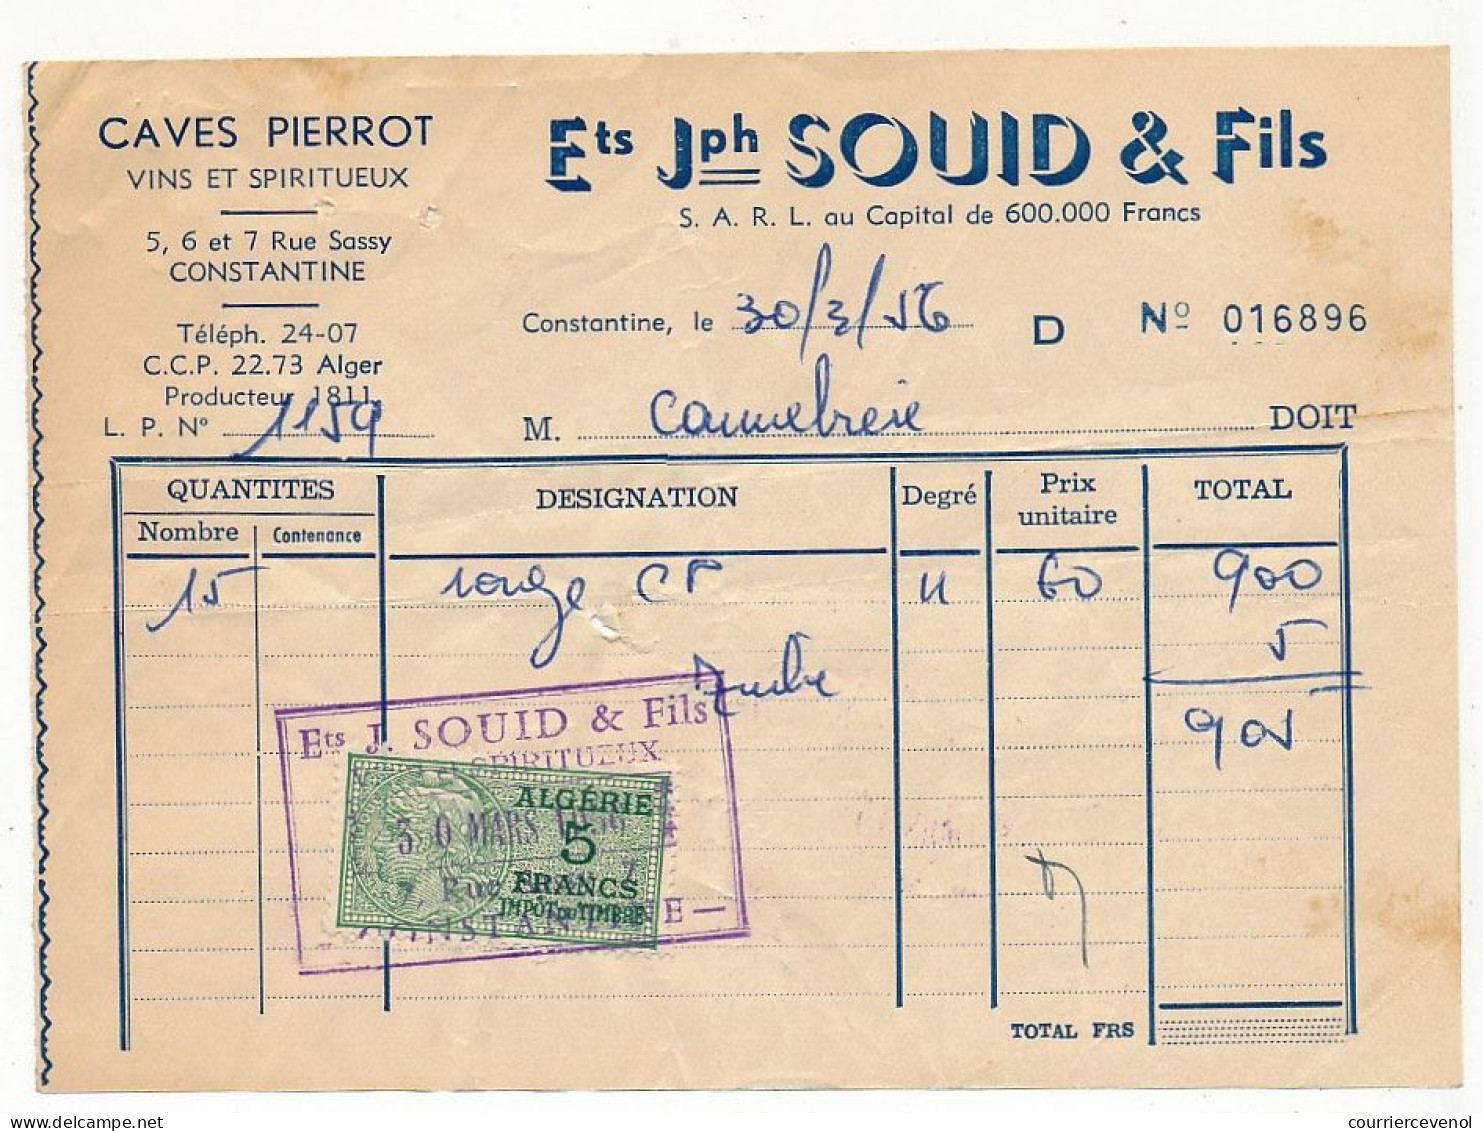 CAVES PIERROT
VINS ET SPIRITUEUX
5, 6 et 7 Rue Sassy
CONSTANTINE
Téléph. 24-07
C.C.P. 22.73 Alger
Producteur 1811
L. P. Nº 1159
Ets Jph SOUID & Fils
S. A. R. L. au Capital de 600.000 Francs
Constantine, le 30/3/56 D Nº 016896
M. DOIT
QUANTITES DESIGNATION Degré Prix unitaire TOTAL
Nombre Contenance
15 rouge CP 11 60 900
Timbre 5
905
Ets J. SOUID & Fils
SPIRITUEUX
ALGÉRIE
30 MARS
5
7 Rue 7
FRANCS
IMPÔT DU TIMBRE
CONSTANTINE —
TOTAL FRS
courriercevenol